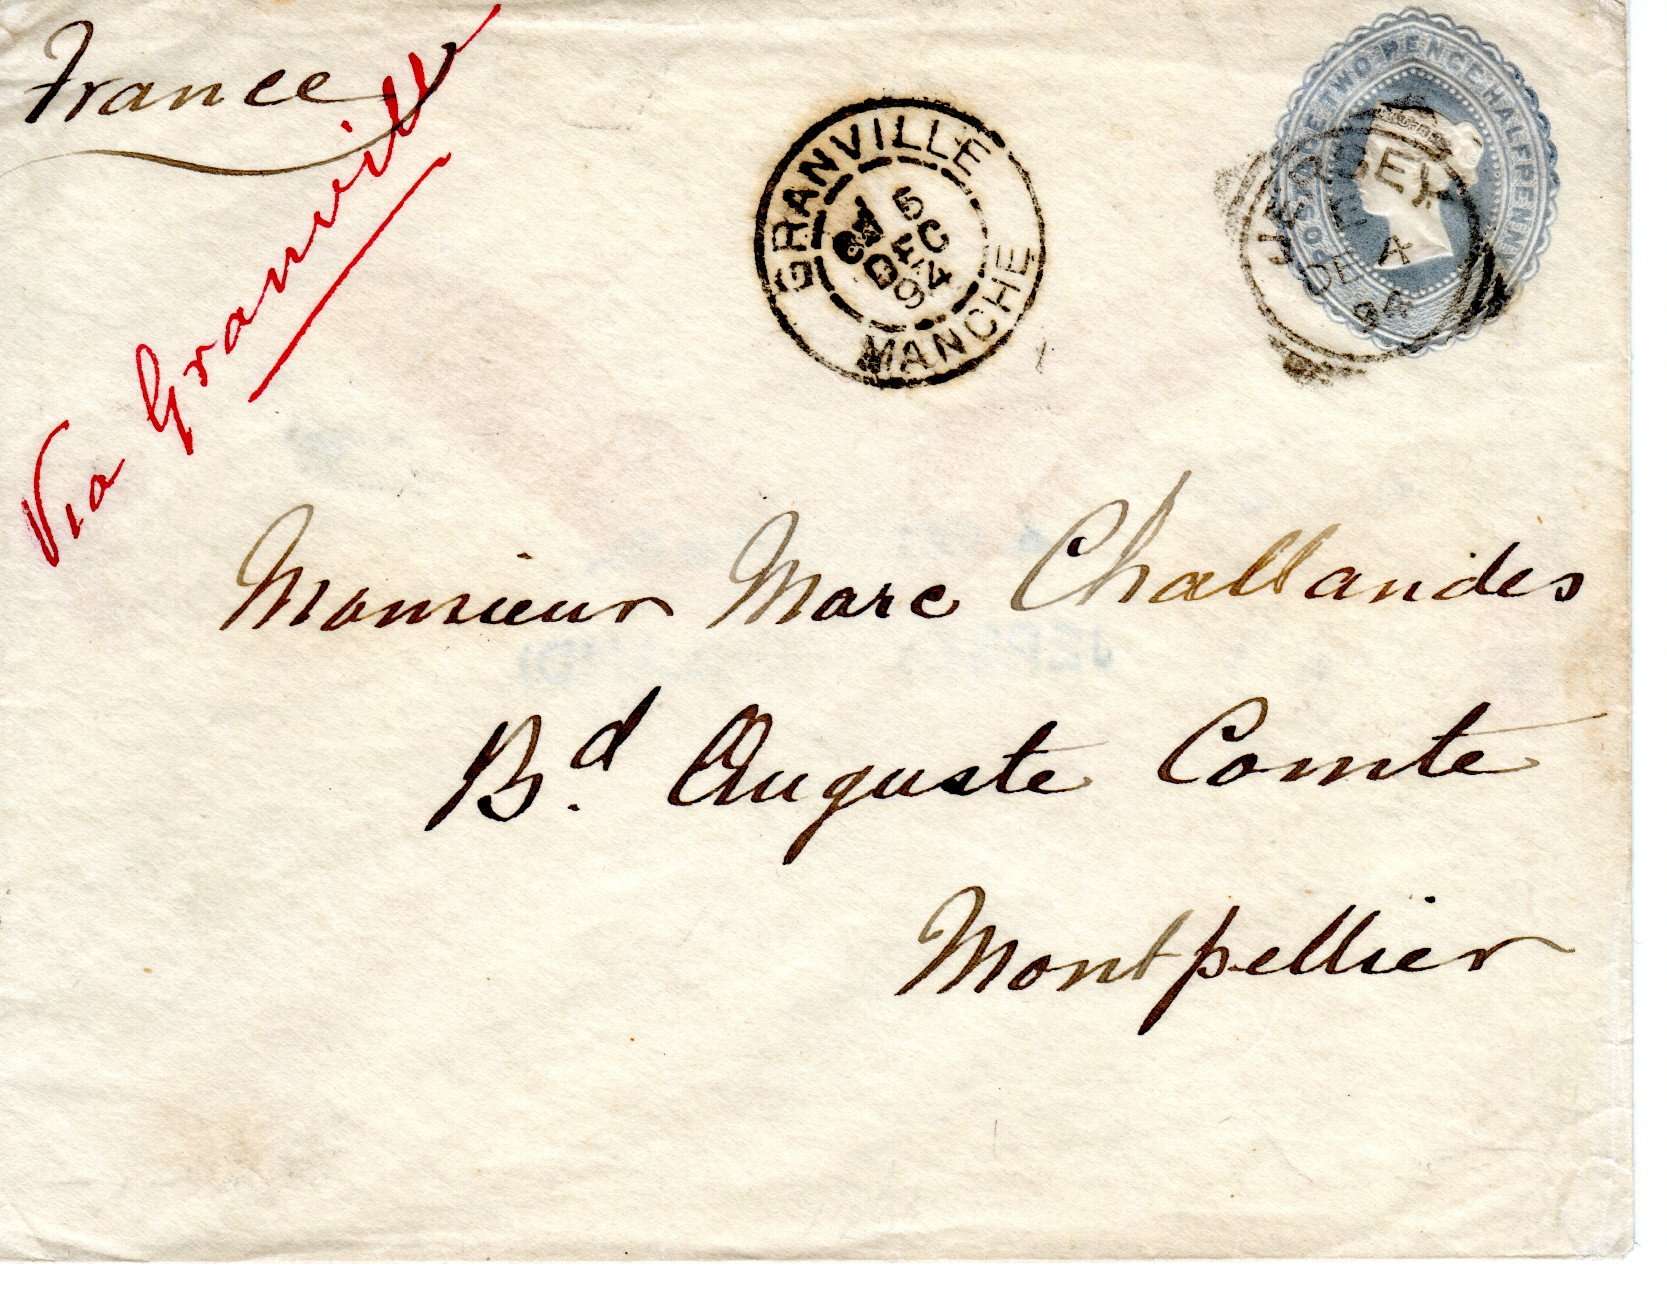 France
Via Granville
GRANVILLE
5
DEC
94
MANCHE
POSTAGE TWO PENCE HALFPENNY
JERSEY
A
DE
94
Monsieur Marc Challandes
Bd. Auguste Comte
Montpellier